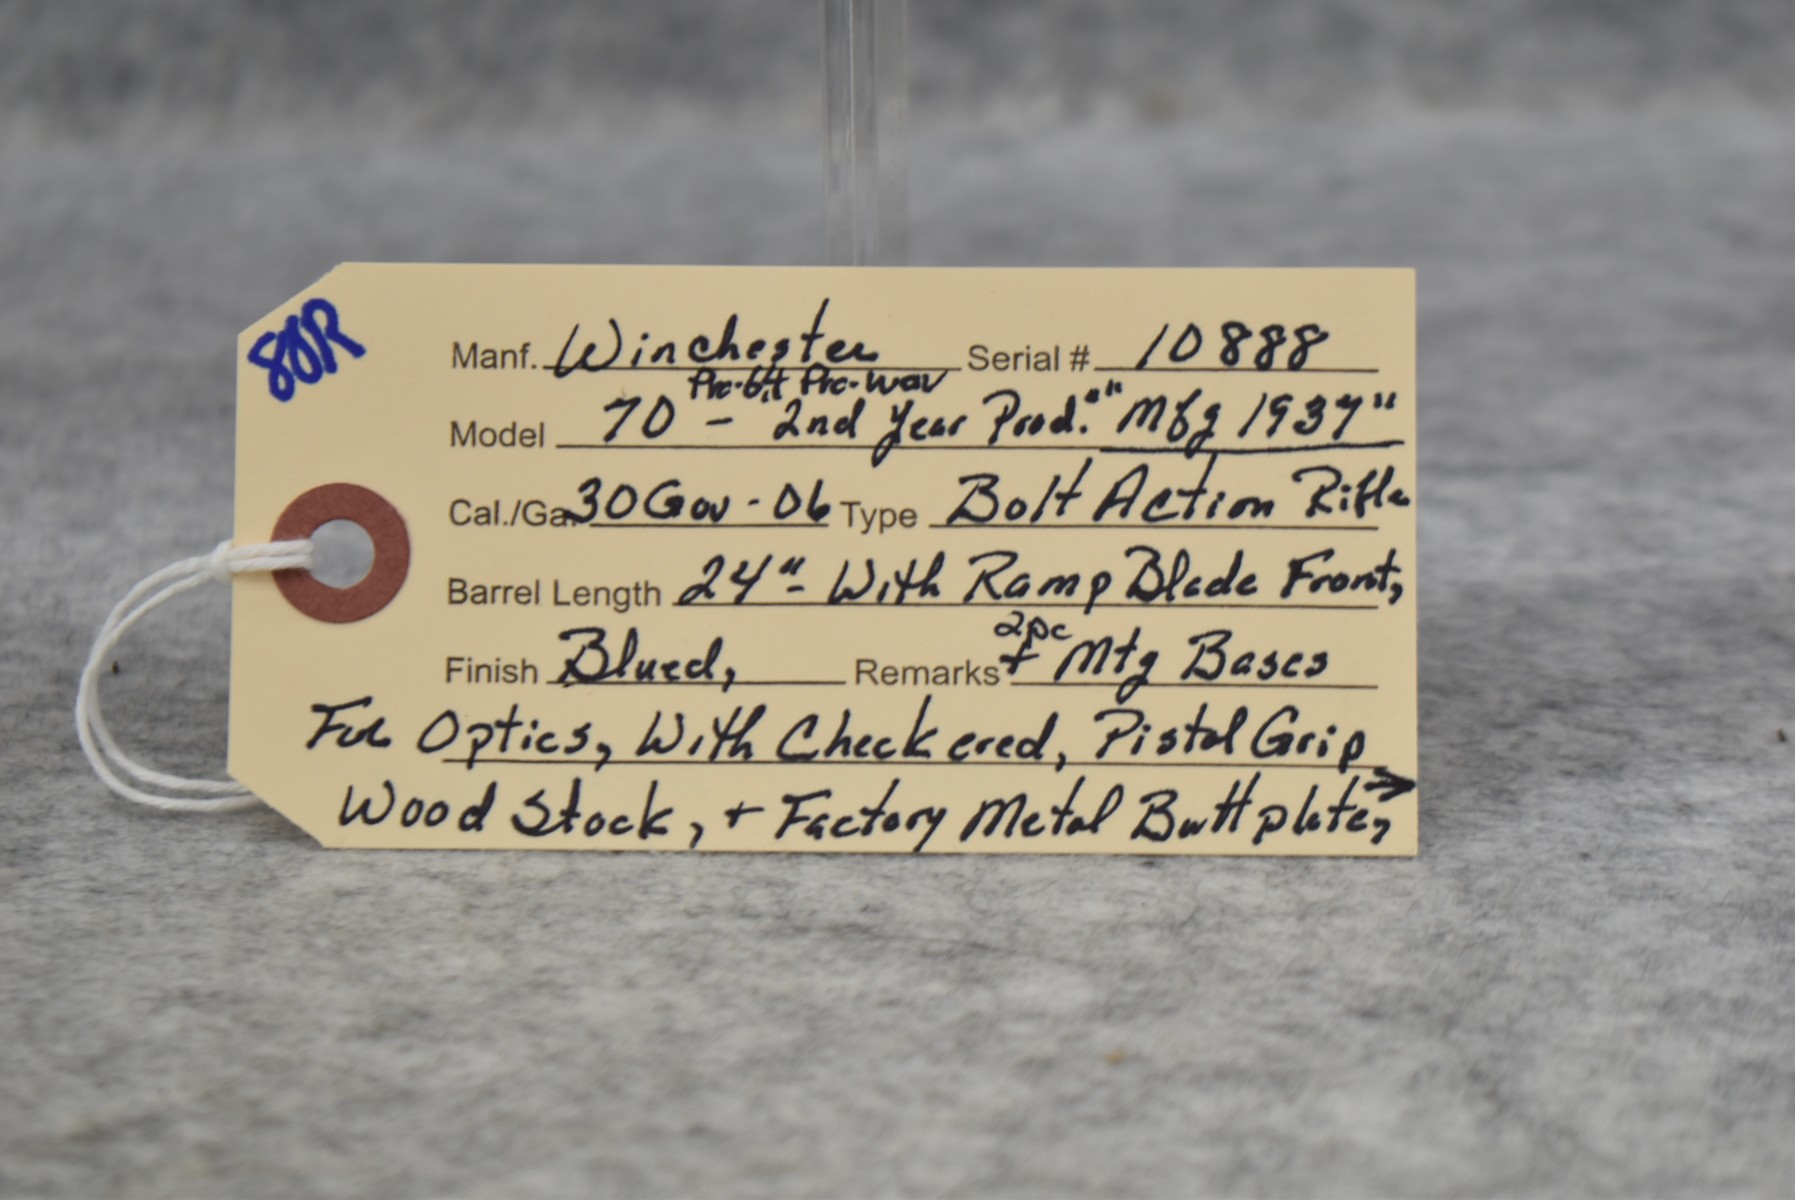 88R
Manf. Winchester Serial # 10888
Pre-64 Pre-War
Model 70 - "2nd Year Prod." "Mfg 1937"
Cal./Ga. 30 Gov-06 Type Bolt Action Rifle
Barrel Length 24" - With Ramp Blade Front,
2pc
Finish Blued, Remarks + Mtg Bases
For Optics, With Checkered, Pistol Grip
Wood Stock, + Factory Metal Buttplate, →